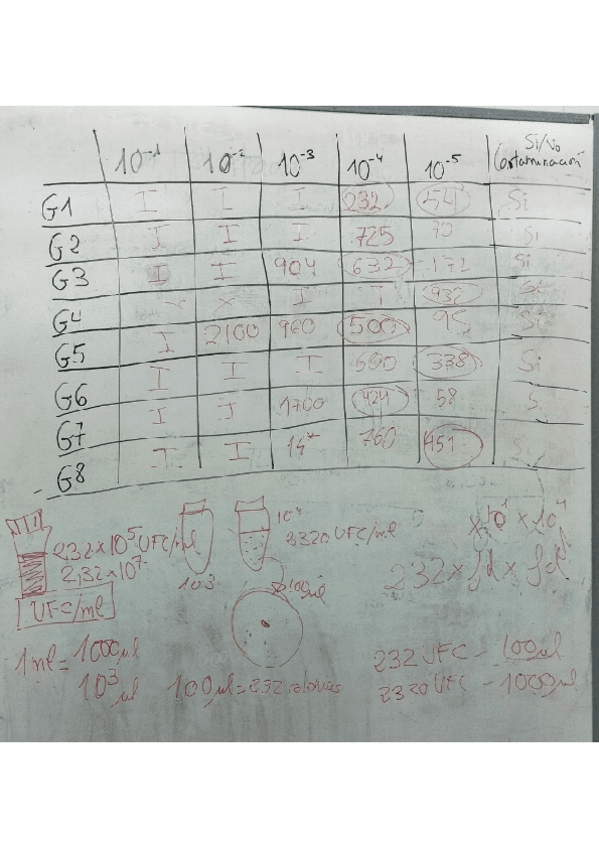 10⁻¹ 10⁻² 10⁻³ 10⁻⁴ 10⁻⁵ Si/No Contaminación
G1 I I I 232 541 Si
G2 I I I 725 70 Si
G3 I I 904 632 172 Si
G4 I I 932 Si
G5 I 2100 960 500 95 Si
G6 I I I 500 338 Si
G7 I I 1700 424 58 S
G8 I I 760 451
232x10⁵ UFC/ml
2,32x10⁷
UFC/ml
2320 UFC/ml
100µl
232 x fd x fd
1ml = 1000µl
10³ µl
100µl = 232 colonias
232 UFC - 100µl
2320 UFC - 1000µl